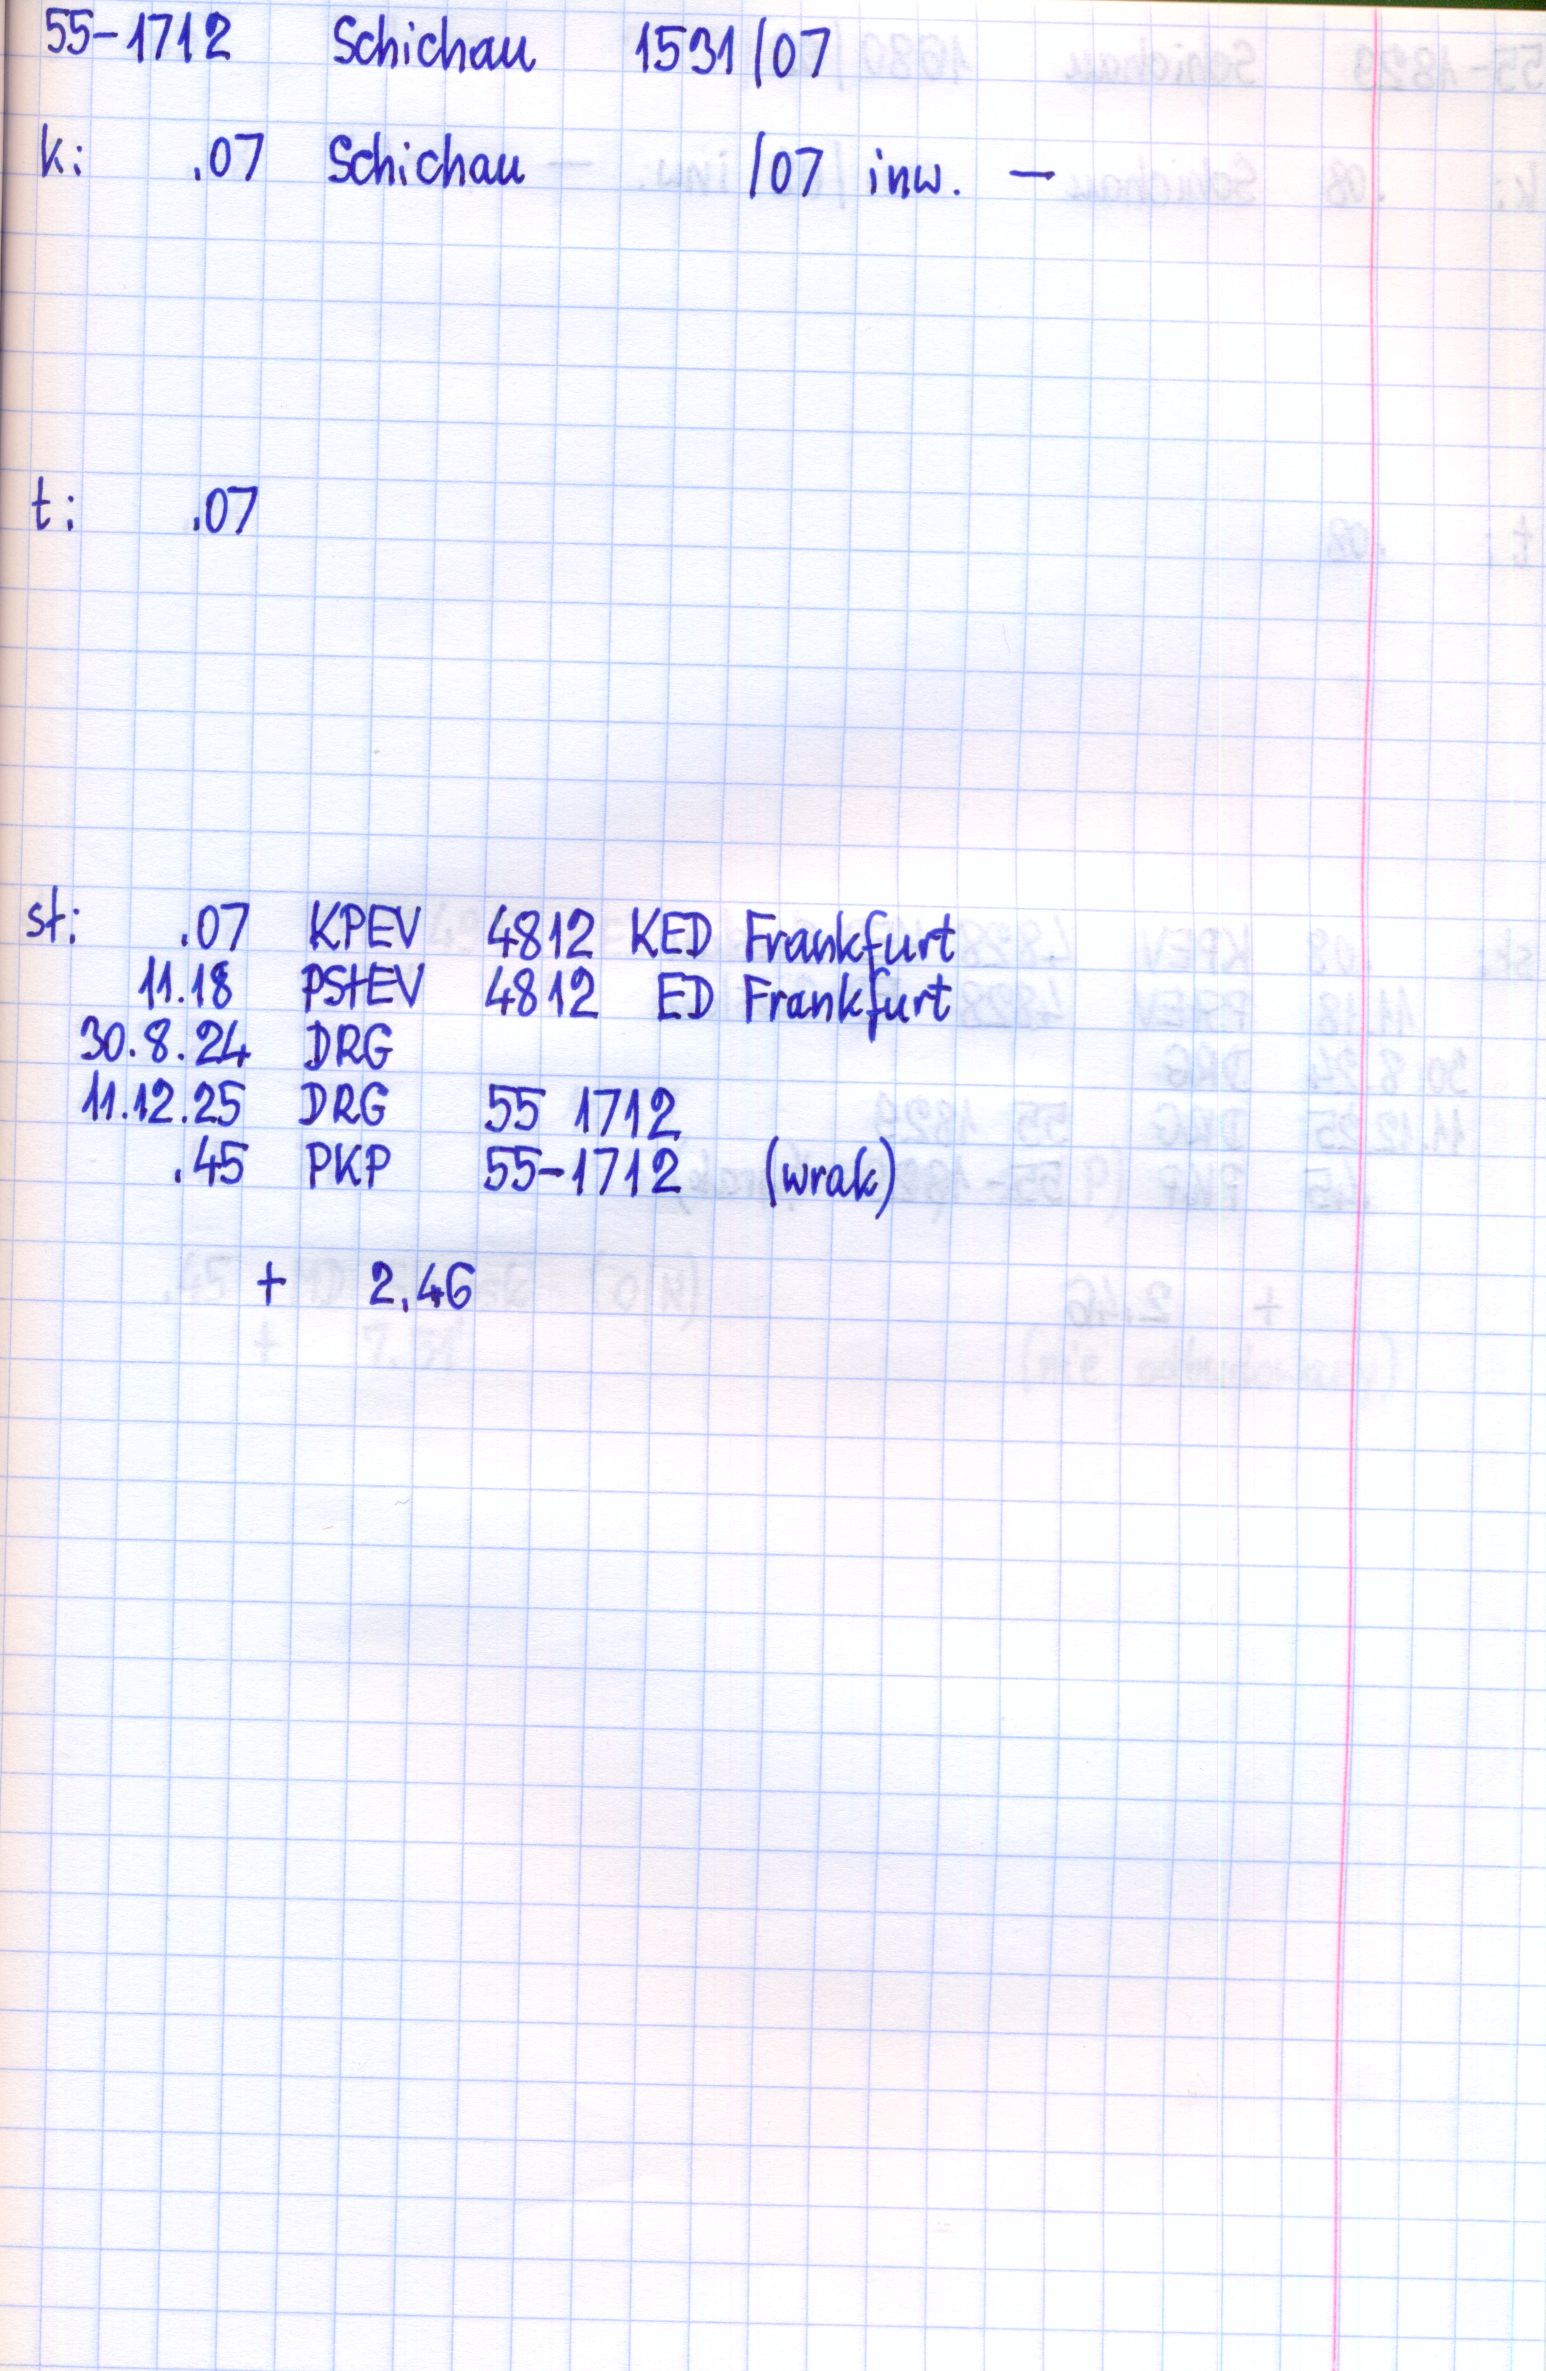 55-1712 Schichau 1531/07
k: .07 Schichau /07 inw. —
t: .07
st: .07 KPEV 4812 KED Frankfurt
11.18 PStEV 4812 ED Frankfurt
30.8.24 DRG
11.12.25 DRG 55 1712
.45 PKP 55-1712 (wrak)
+ 2.46